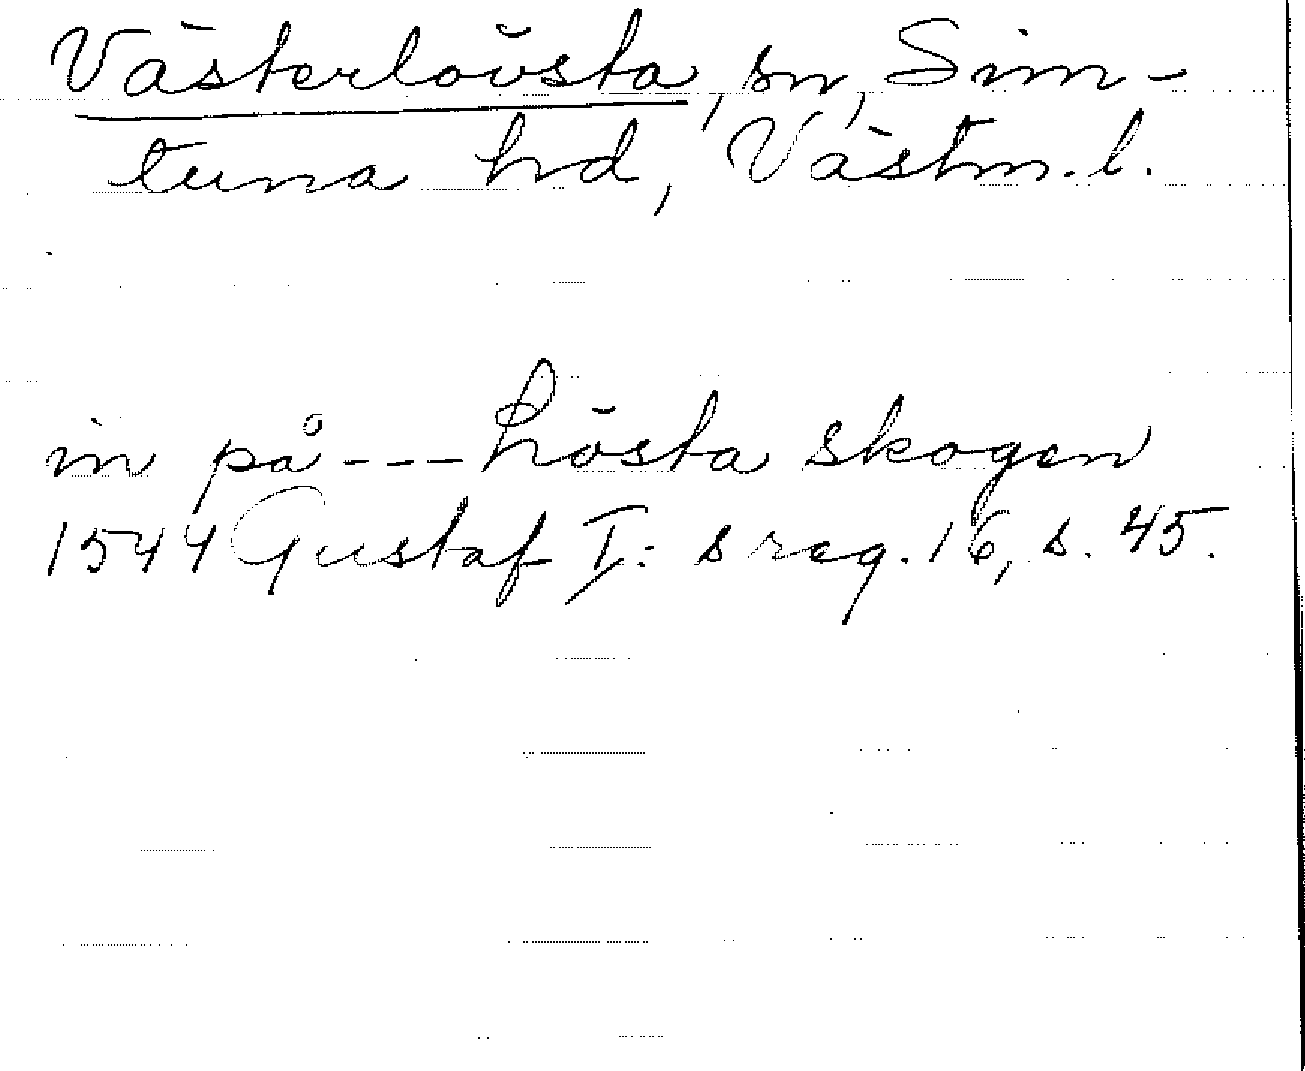 Västerlövsta, sn, Sim-
tuna hd, Västm. l.
in på --- Lösta skogen
1544 Gustaf I:s reg. 16, s. 45.